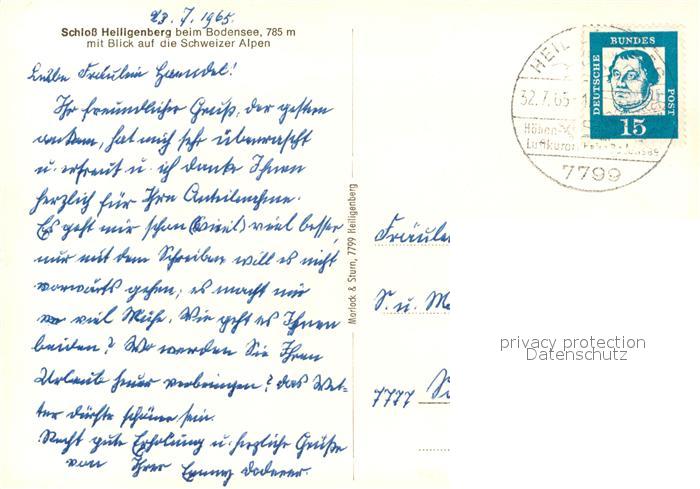 23. 7. 1965.
Schloß Heiligenberg beim Bodensee, 785 m
mit Blick auf die Schweizer Alpen
Liebe Fräulein Haendel!
Ihr freundlicher Gruß, der gestern
ankam, hat mich sehr überrascht
u. erfreut u. ich danke Ihnen
herzlich für Ihre Anteilnahme.
Es geht mir schon (viel) viel besser,
nur mit dem Schreiben will es nicht
vorwärts gehen; es macht mir
so viel Mühe. Wie geht es Ihnen
beiden? Wo werden Sie Ihren
Urlaub heuer verbringen? Das Wet-
ter dürfte schöner sein.
Recht gute Erholung u. herzliche Grüße
von Ihrer Emmy Doderer.
Morlock & Sturn, 7799 Heiligenberg
HEIL
22.7.65-1
Höhen-
Luftkurort
7799
DEUTSCHE BUNDES POST
15
Fräulei
S. u. M
7777 S
privacy protection
Datenschutz